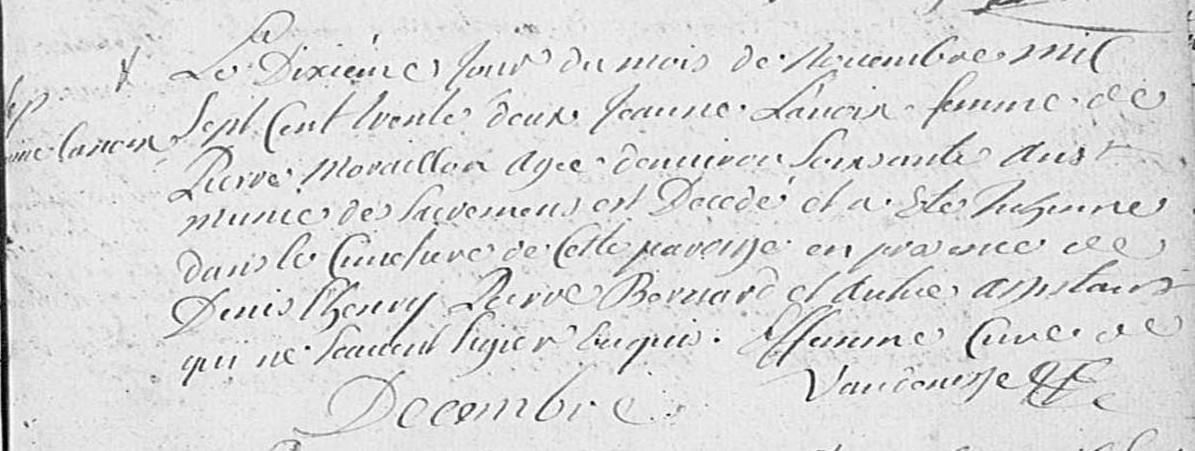 Le Dixiéme Jour du mois de Novembre mil
Sept Cent trente deux Jeanne Lanoix femme de
Pierre Moraillon agée denviron Soixante ans
munie des Sacremens est Decedé et a Ete Inhumée
dans le Cimetiere de Cette paroisse en presence de
Denis Thenry Pierre Bernard et autre assistans
qui ne Scavent signer Enquis. Curé de
Vandenesse
Decembre
lanoix